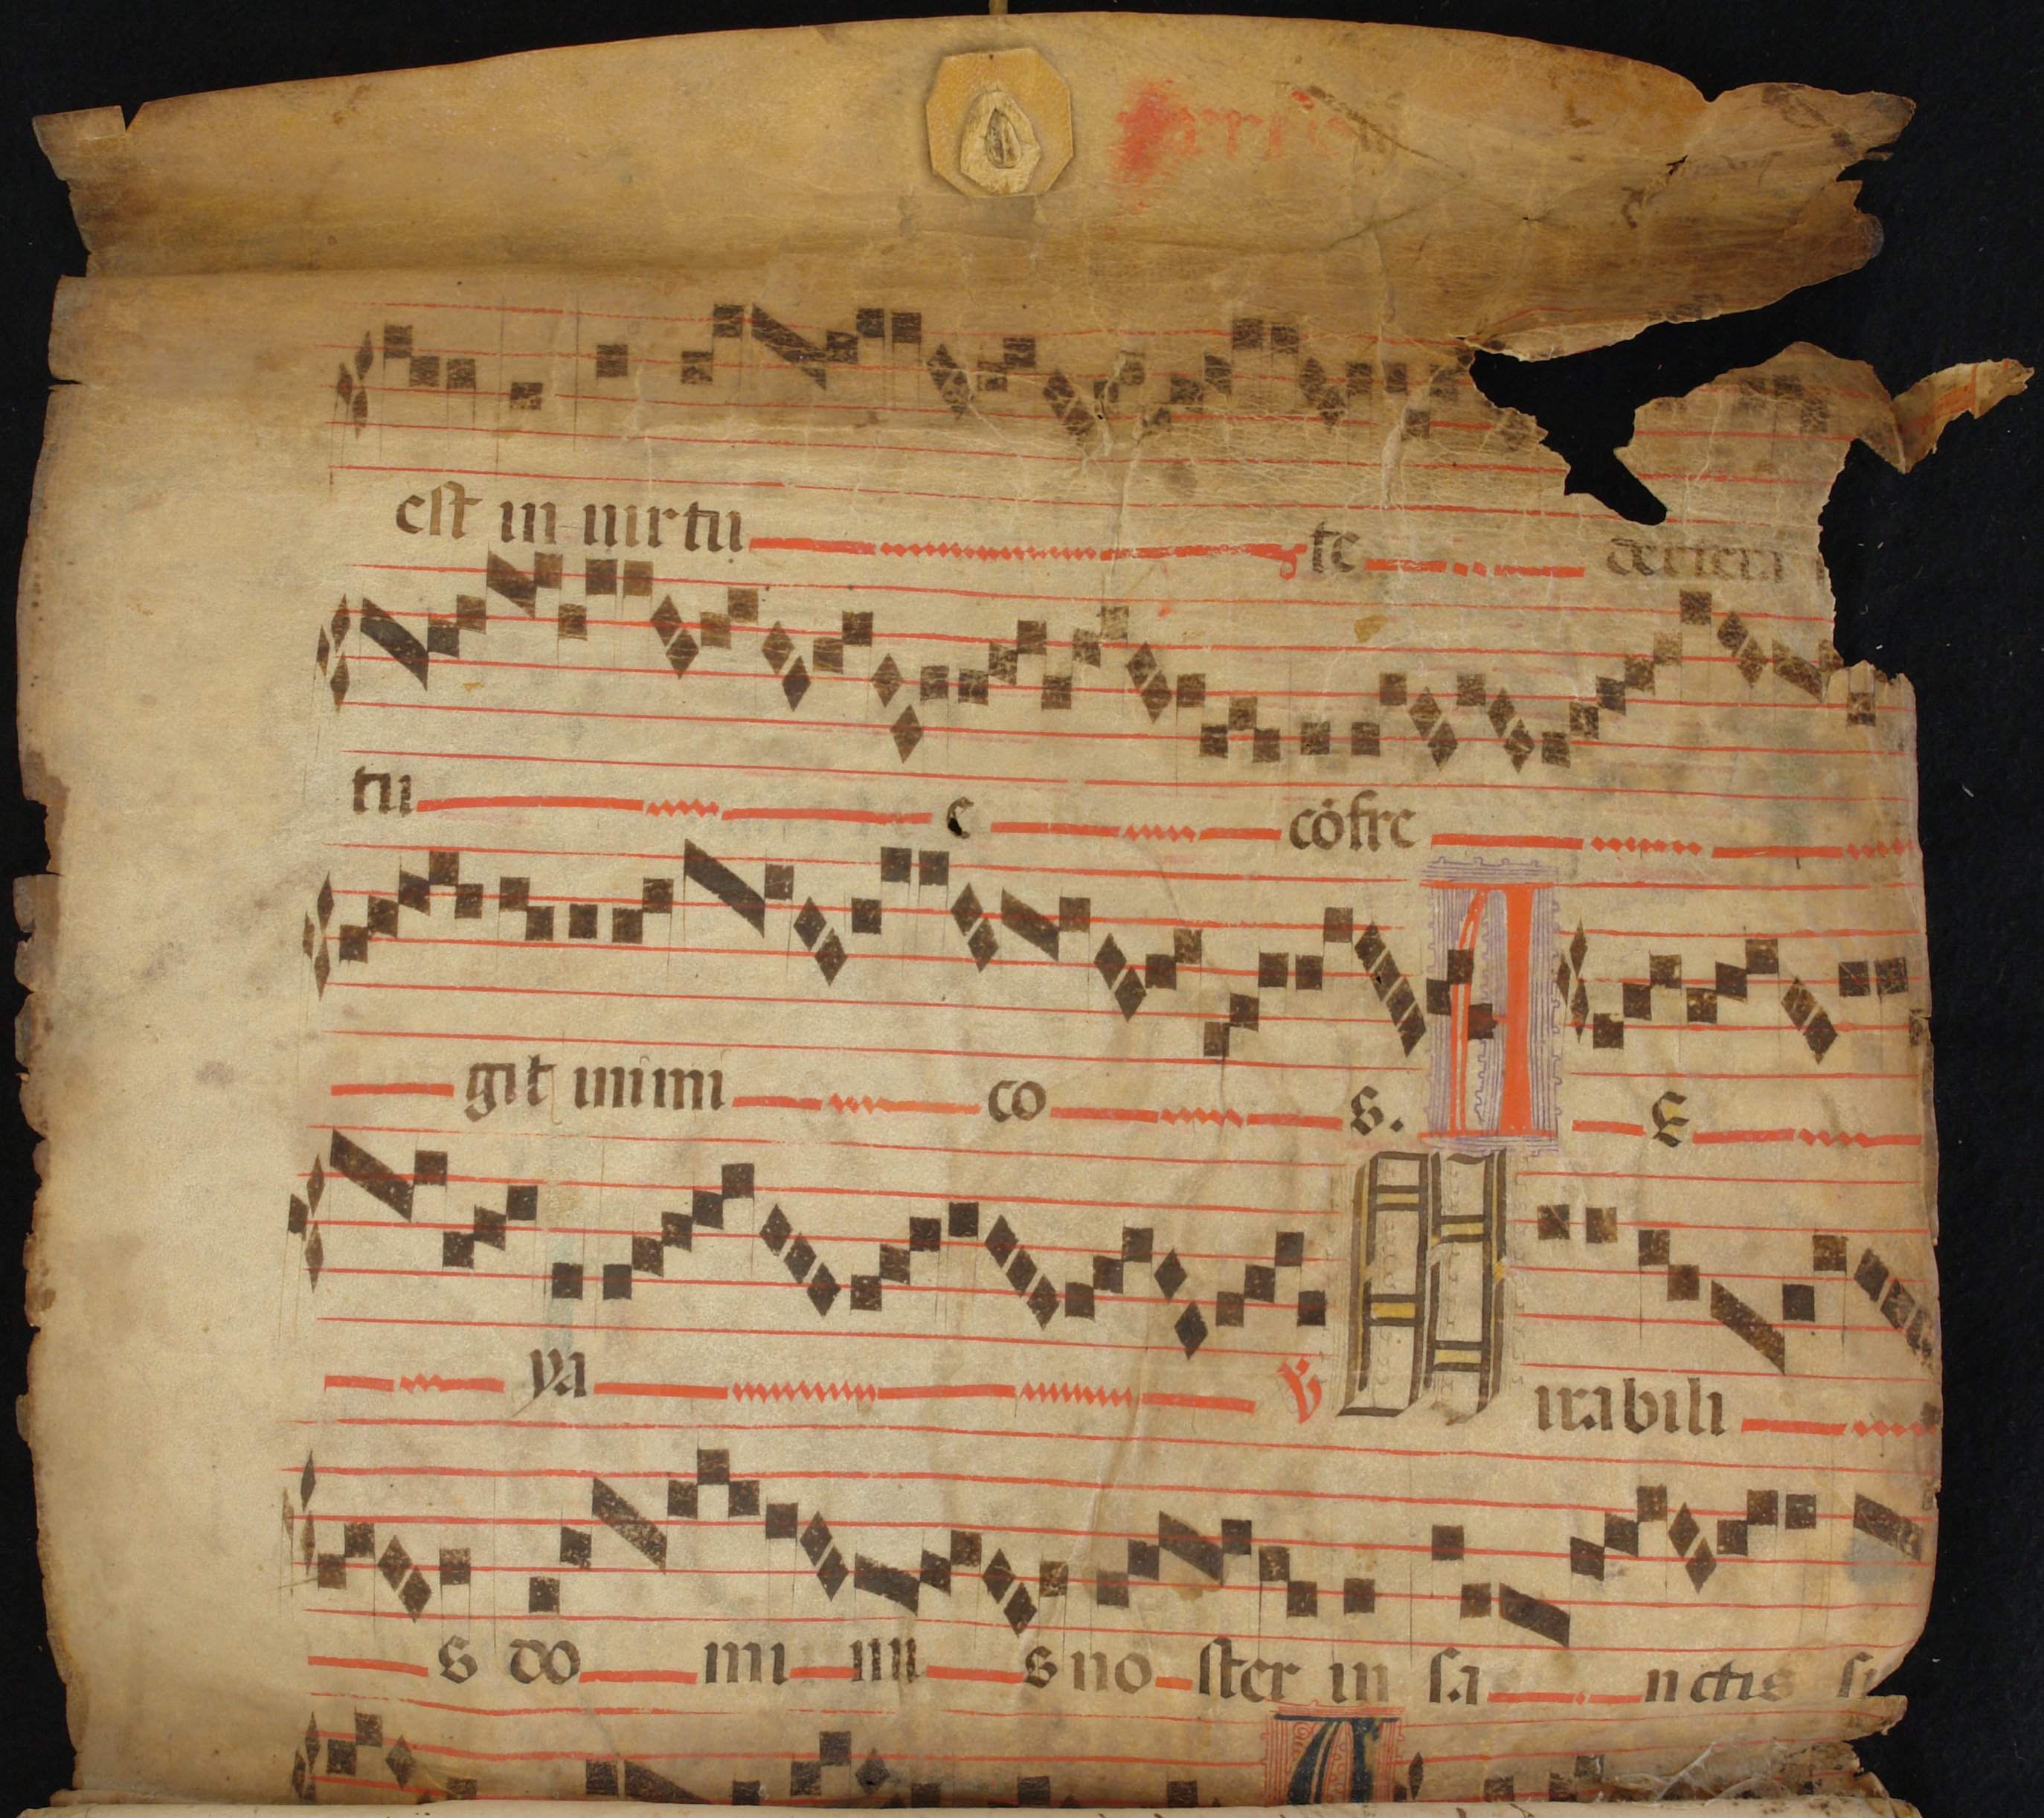 est in uirtu te dextera
tu e cōfre
git inimi co s. A E
ya V Mirabili
s do mi nu s no ster in sa nctis su
A